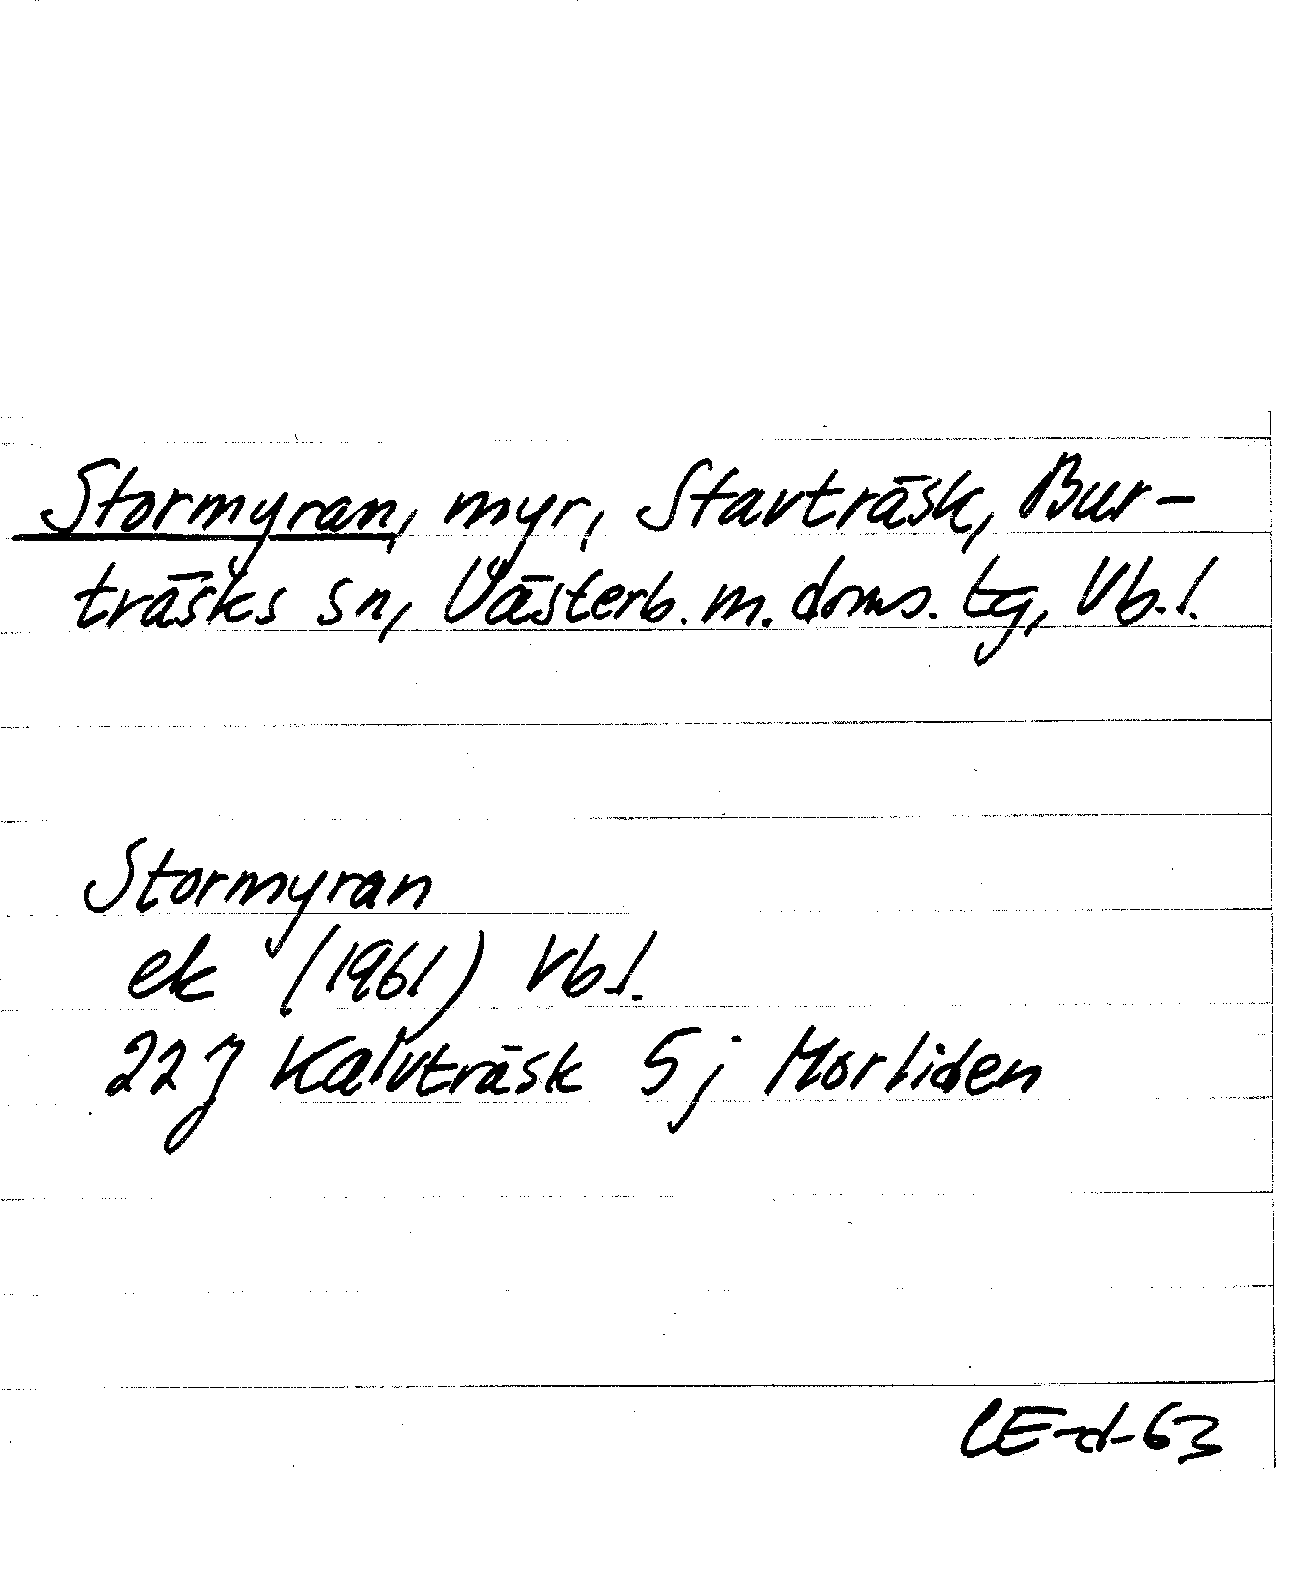 Stormyran, myr, Stavträsk, Bur-
träsks sn, Västerb. m. doms. tg, Vb. l.
Stormyran
ek (1961) Vb l.
22J Kalvträsk 5j Morliden
CE-d-63